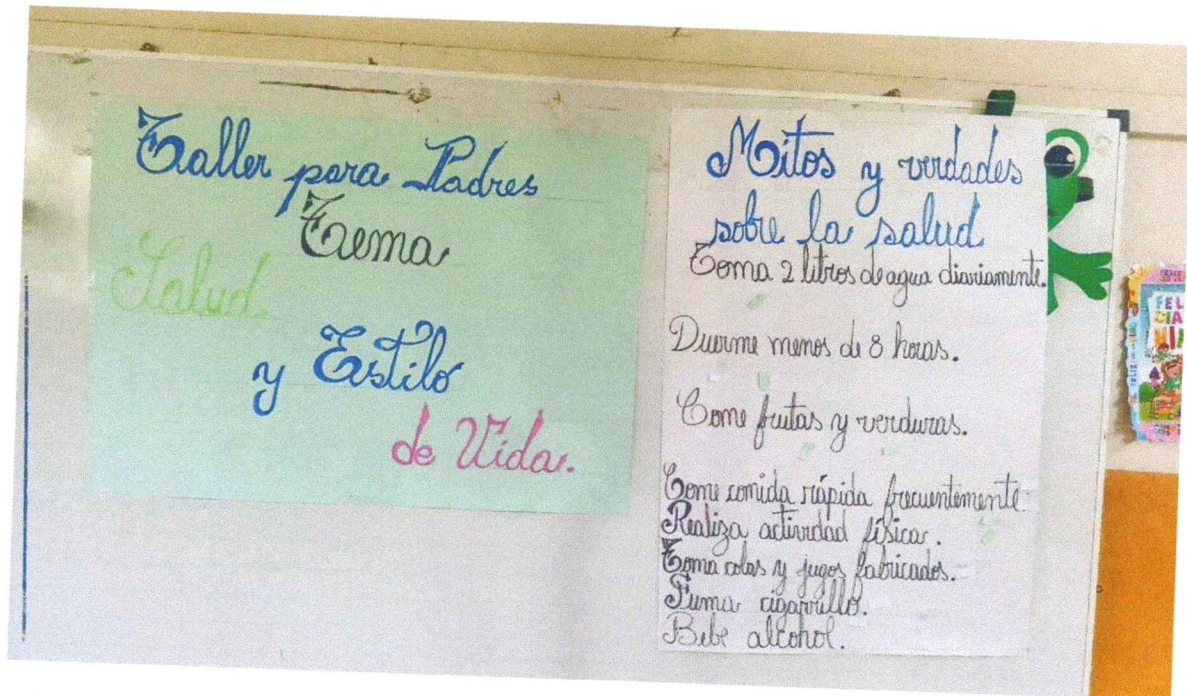 Taller para Padres
Tema
Salud
y Estilo
de Vida.
Mitos y verdades
sobre la salud
Toma 2 litros de agua diariamente.
Duerme menos de 8 horas.
Come frutas y verduras.
Come comida rápida frecuentemente.
Realiza actividad física.
Toma colas y jugos fabricados.
Fuma cigarrillo.
Bebe alcohol.
FEL